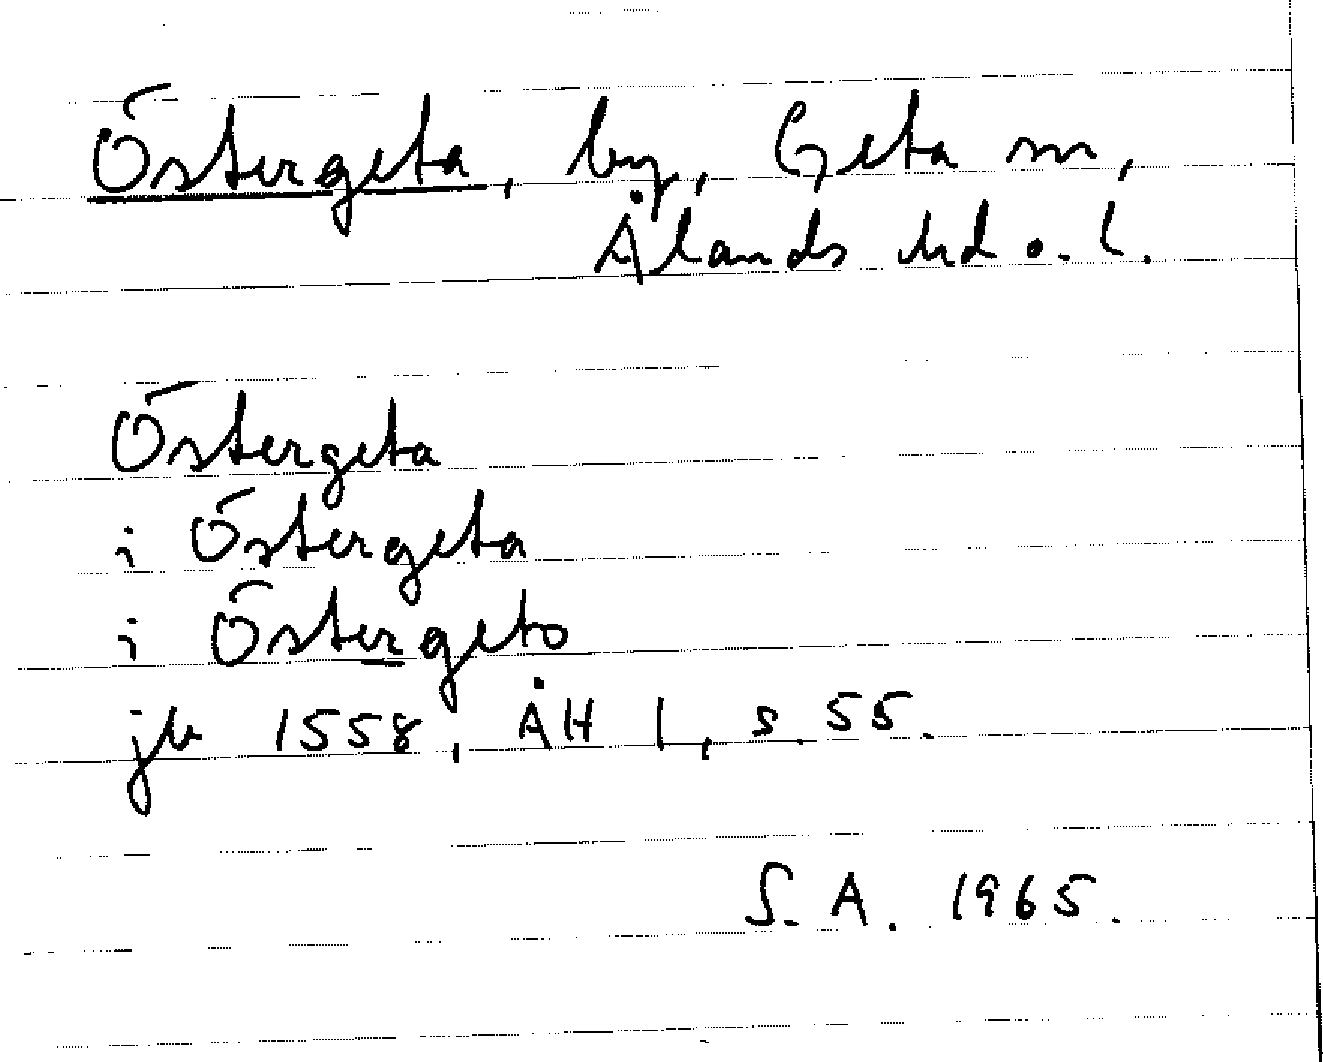 Östergeta, by, Geta sn,
Ålands hd o. l.
Östergeta
i Östergeta
i Östergeto
jb 1558, ÅH I, s. 55.
S. A. 1965.